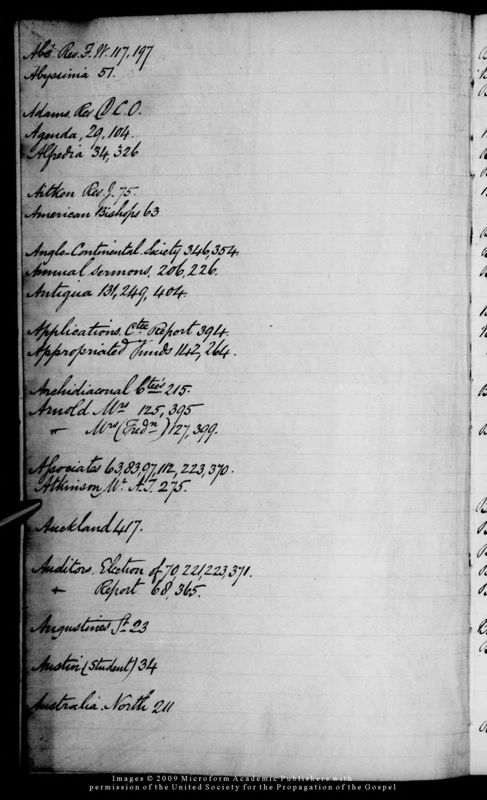 Abé Rev. F. W. 117, 197
Abyssinia 51.
Adams. Rev D C. O.
Agenda, 29, 104.
34, 326
Aitken Rev J. 75.
American Bishops 63
Anglo-Continental Society 346, 354.
Annual Sermons. 206, 226.
Antigua 131, 249, 404.
Applications. Ctee Report 394.
Appropriated Funds 142, 264.
Archidiaconal Ctees 215.
Arnold Mrs 125, 395
" Mrs (Fredn) 127, 399.
Associates 63, 83, 97, 112, 223, 370.
Atkinson, Mr A. T. 275.
Auckland 417.
Auditors. Election of 70, 221, 223, 371.
" Report 68, 365.
Augustines St 23
Austin (Student) 34
Australia. North 211
Images © 2009 Microform Academic Publishers with
permission of the United Society for the Propagation of the Gospel